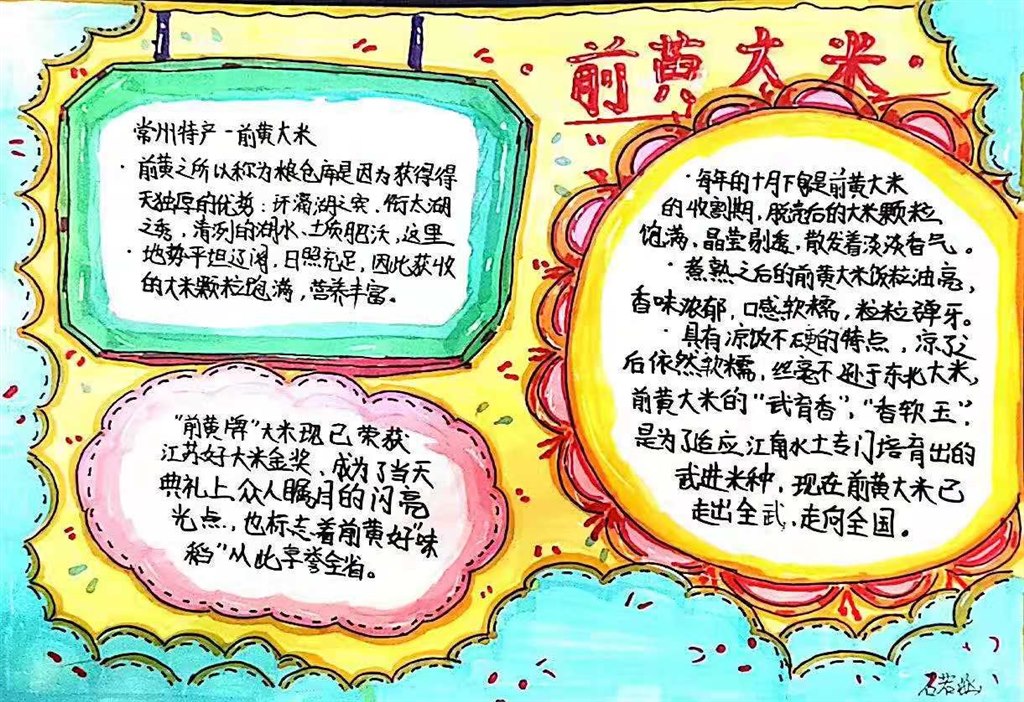 前黄大米
常州特产-前黄大米
·前黄之所以称为粮仓库是因为获得得
天独厚的优势：环滆湖之突、衔太湖
之秀，清冽的湖水、土质肥沃，这里
·地势平坦辽阔，日照充足，因此获收
的大米颗粒饱满，营养丰富。
"前黄牌"大米现已荣获
江苏好大米金奖、成为了当天
典礼上众人瞩目的闪亮
光点，也标志着前黄好"味
稻"从此享誉全省。
·每年的十月下旬是前黄大米
的收割期，脱壳后的大米颗粒
饱满，晶莹剔透，散发着淡淡香气。
·煮熟之后的前黄大米饭粒油亮，
香味浓郁，口感软糯，粒粒弹牙。
·具有凉饭不硬的特点，凉了之
后依然软糯，丝毫不逊于东北大米，
前黄大米的"武育香"，"香软玉"
是为了适应江南水土专门培育出的
武进米种，现在前黄大米已
走出全武，走向全国。
石若